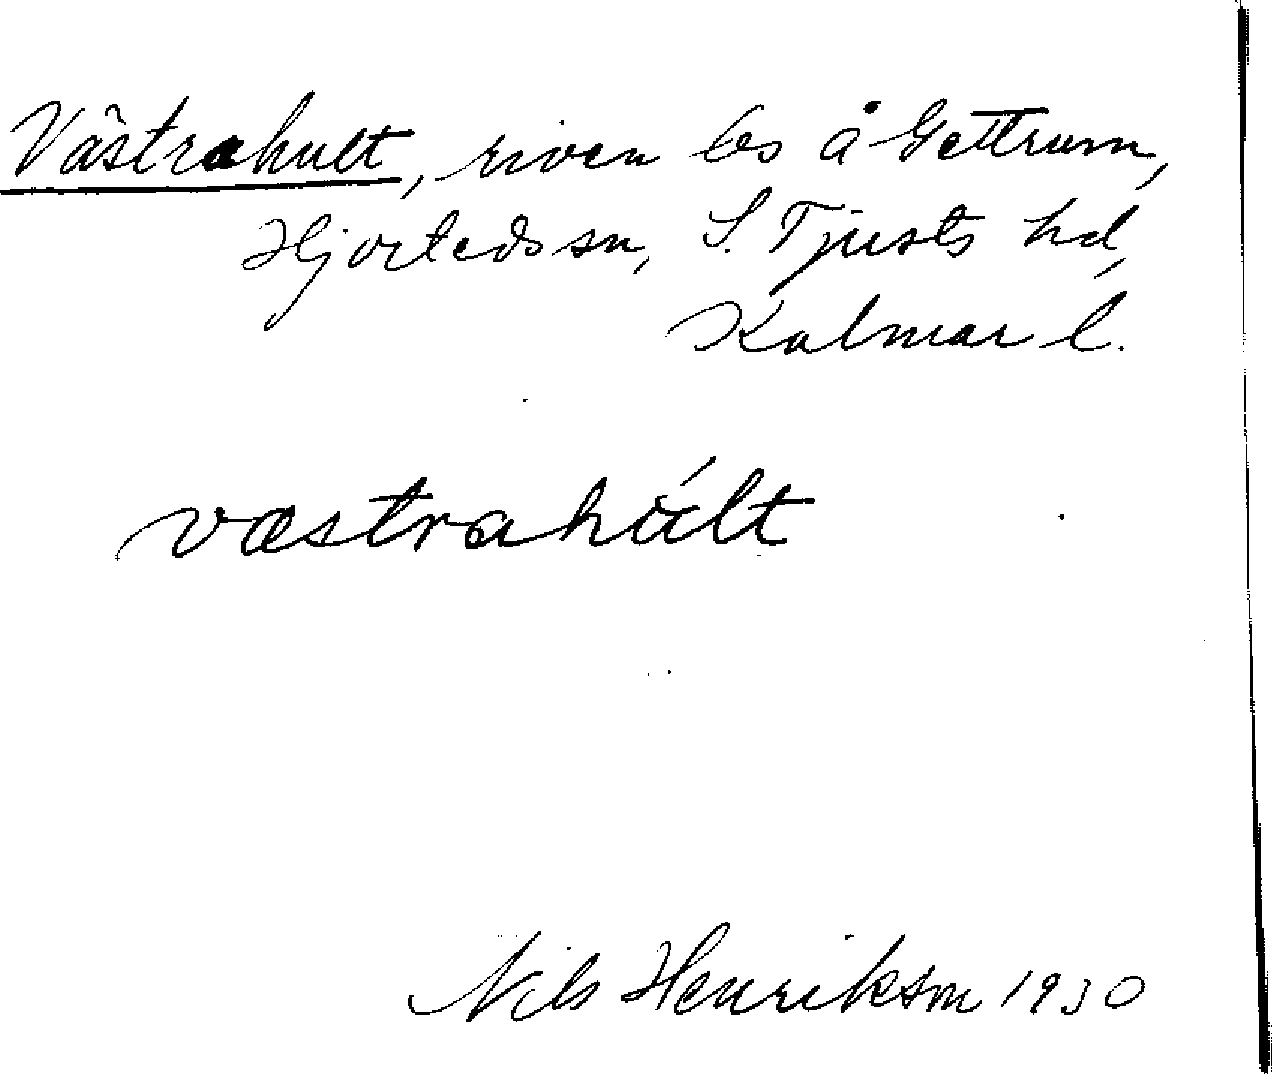 Västrahult, riven lgs å Gettrum,
Hjorteds sn, S. Tjusts hd,
Kalmar l.
væstrahúlt
Nils Henrikson 1930